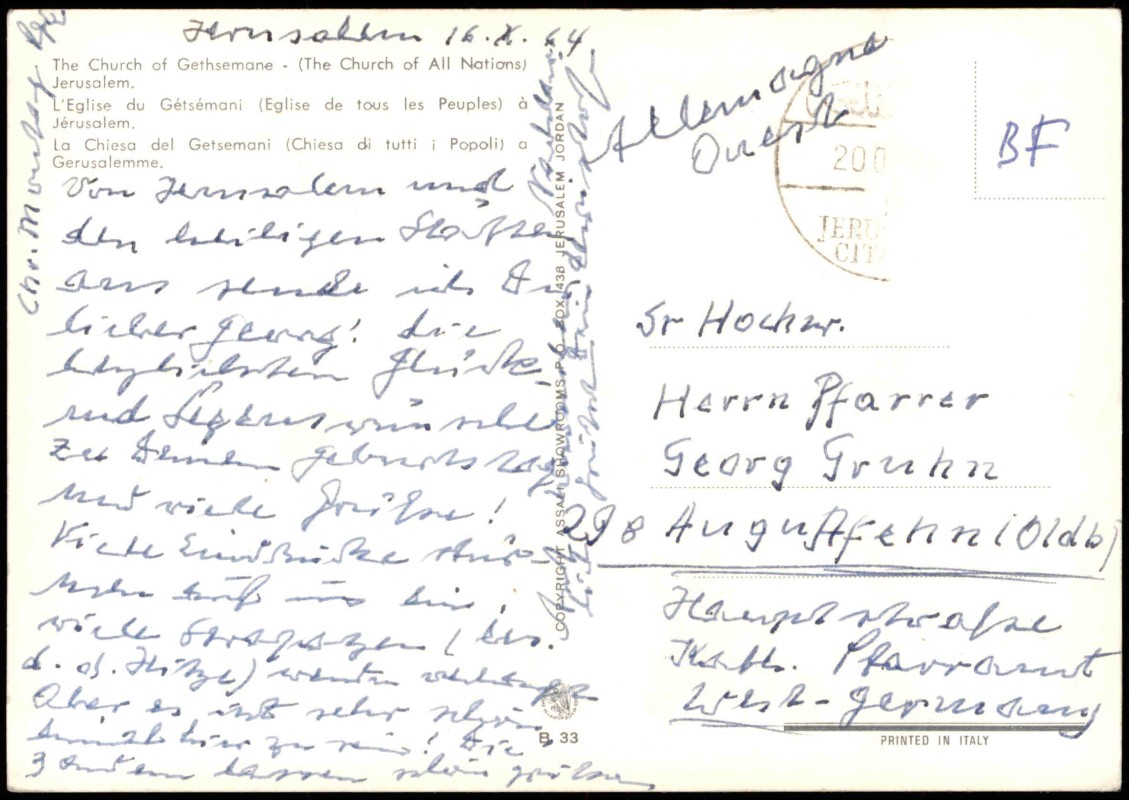 Jerusalem 16.X.64
The Church of Gethsemane - (The Church of All Nations)
Jerusalem.
L'Eglise du Gétsémani (Eglise de tous les Peuples) à
Jérusalem.
La Chiesa del Getsemani (Chiesa di tutti i Popoli) a
Gerusalemme.
Von Jerusalem und
den heiligen Stätten
aus sende ich Dir
lieber Georg! die
herzlichsten Glück-
und Segenswünsche
zu Deinem Geburtstag
und viele Grüße!
Viele Eindrücke stür-
men auf uns ein,
viele Strapazen (bes.
d. d. Hitze) werden verlangt
Aber es ist sehr schön
einmal hier zu sein! Die
3 andern lassen schön grüßen
Chr.
COPYRIGHT ASSALI SHOWROOMS P.O. BOX 438 JERUSALEM JORDAN
B. 33
Allemagne
Ouest
200
JERU
CIT
BF
Sr Hochw.
Herrn Pfarrer
Georg Gruhn
298 Augustfehn (Oldb)
Hauptstraße
Kath. Pfarramt
West-Germany
PRINTED IN ITALY